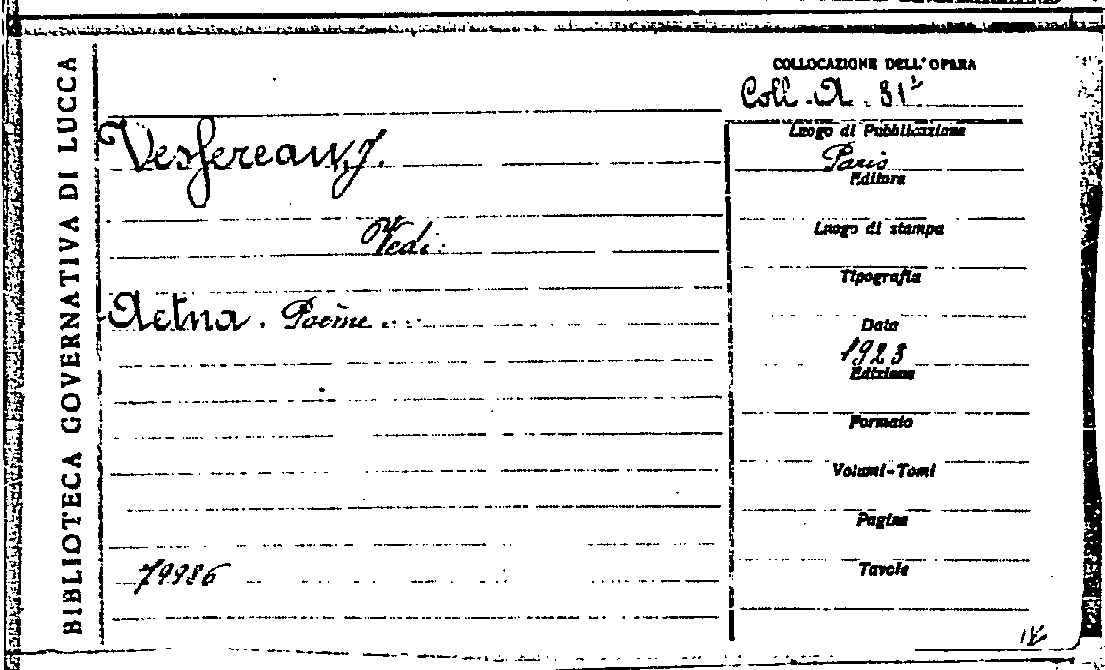 BIBLIOTECA GOVERNATIVA DI LUCCA
COLLOCAZIONE DELL'OPERA
Coll. A. 31²
Vessereau, J.
Vedi:
Aetna. Poème...
79986
Luogo di Pubblicazione
Paris
Editore
Luogo di stampa
Tipografia
Data
1923
Edizione
Formato
Volumi-Tomi
Pagine
Tavole